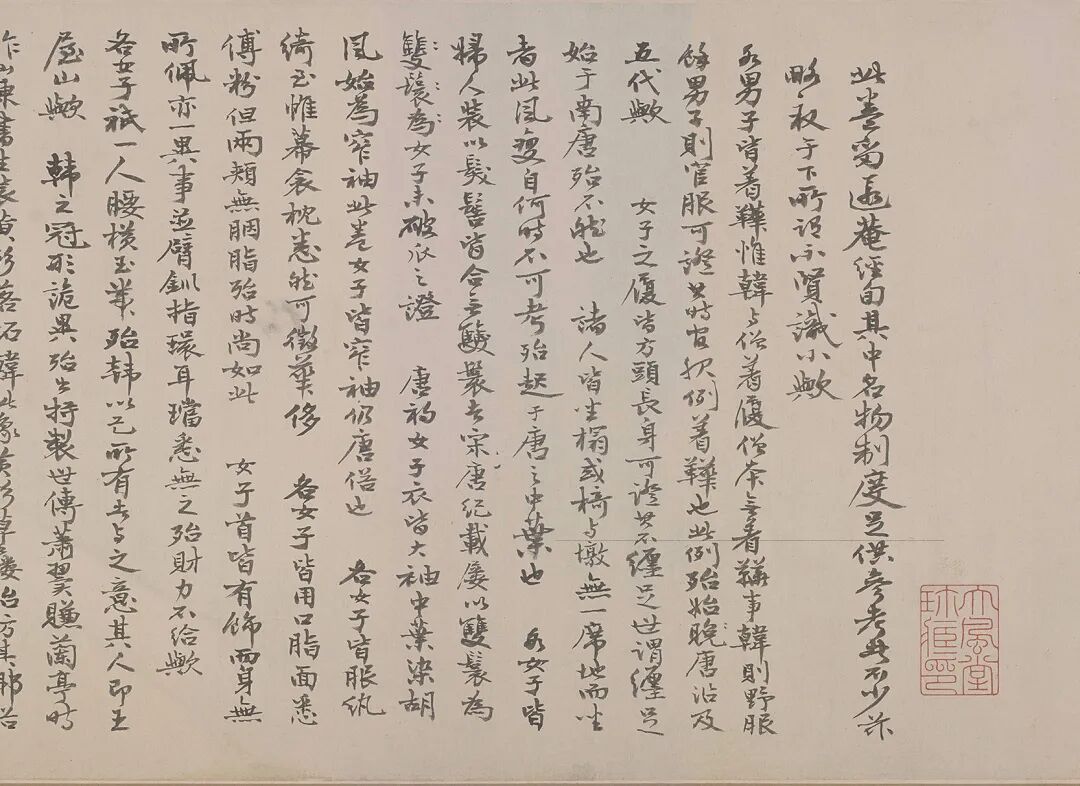 此卷當遜菴經白其中名物制度足供參考者不少茲
略一叔于下所謂不賢識小歟
各男子皆着鞾惟韓与僧着履僧本無着鞾事韓則野服
餘男子則官服可證其時官服例着鞾也此例殆始晚唐沿及
五代歟 女子之履皆方頭長身可證其不纏足世謂纏足
始于南唐殆不然也 諸人皆坐榻或椅与墩無一席地而坐
者此風變自何時不可考殆起于唐之中葉也 各女子皆
婦人裝以髮髻皆合無雙鬟者宋唐紀載屢以雙鬟為
雙鬟為女子未破瓜之證 唐初女子衣皆大袖中葉染胡
風始為窄袖此卷女子皆窄袖仍唐俗也 各女子皆服紈
綺至帷幕衾枕悉然可徵華侈 各女子皆用口脂面悉
傅粉但兩頰無胭脂殆時尚如此 女子首皆有飾而身無
所佩亦一異事並臂釧指環耳璫悉無之殆財力不給歟
各女子祇一人腰橫玉業殆韓以己所有者与之意其人即王
屋山歟 韓之冠形詭異殆出特製世傳蕭翼賺蘭亭時
作山東書生裝
大風堂珍臧印